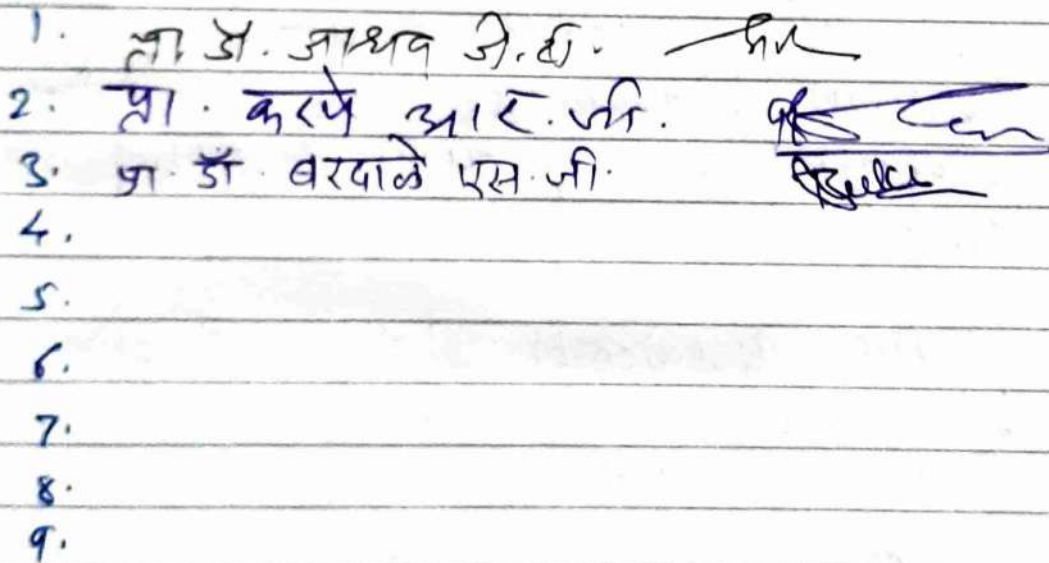 1. प्रा डॉ. जाधव जे.डी.
2. प्रा. करपे आर.जी.
3. प्रा. डॉ. बरदाळे एस.जी.
4.
5.
6.
7.
8.
9.